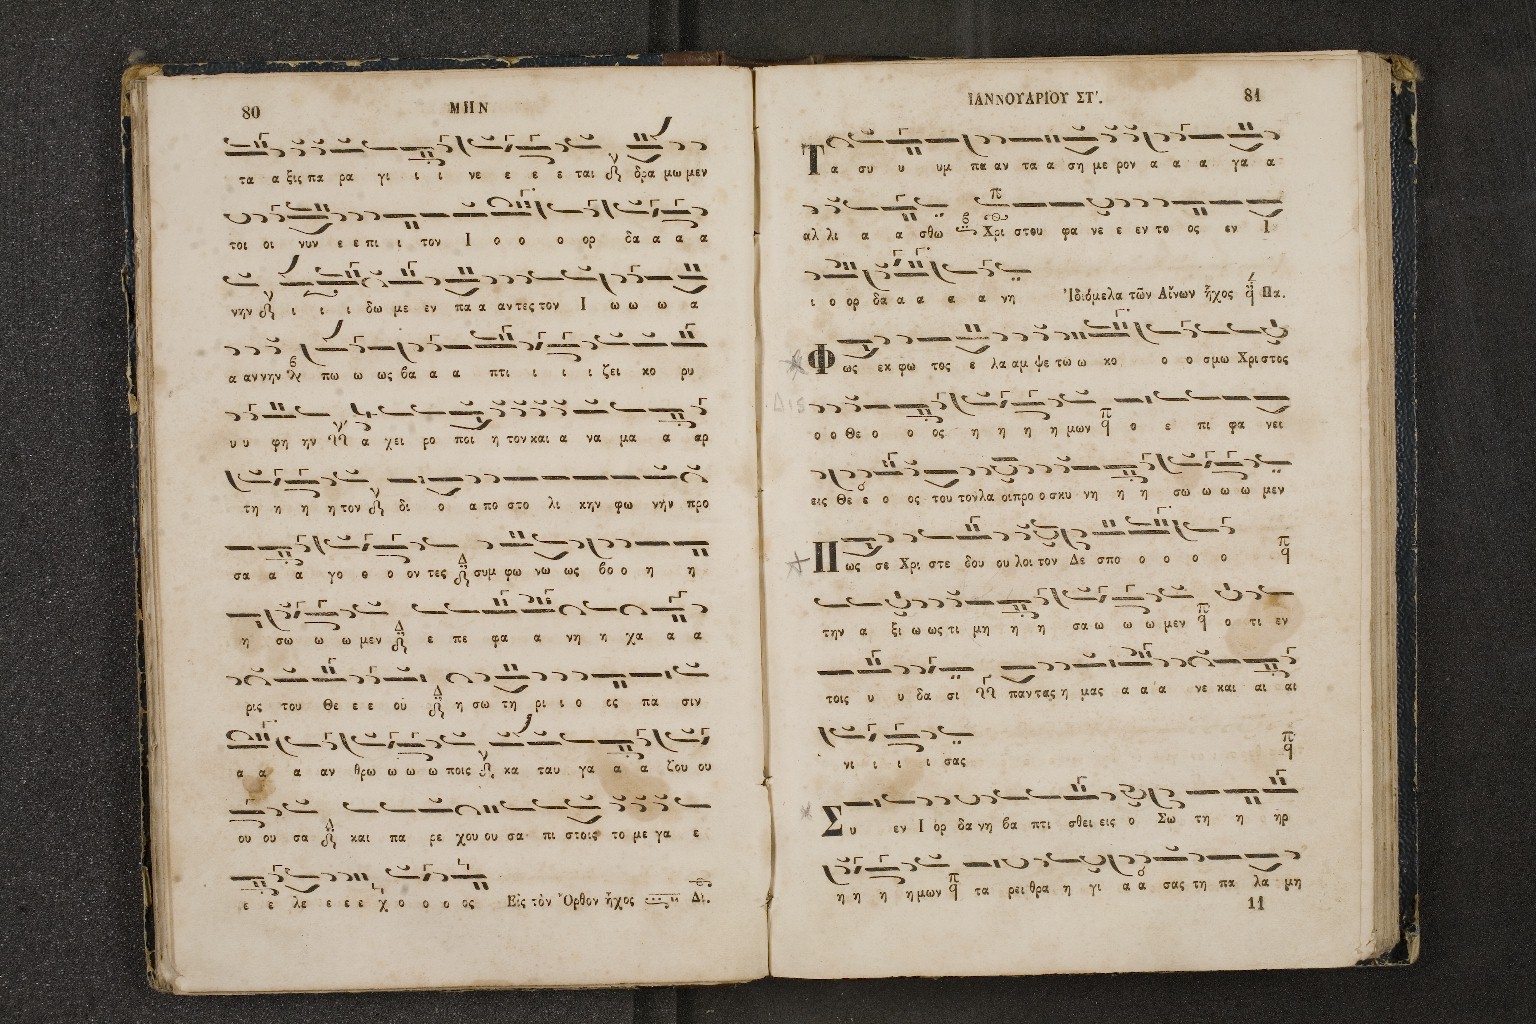 80
ΜΗΝ
τα α ξις πα ρα γι ι ι νε ε ε ε ται δρα μω μεν
τοι οι νυν ε ε πι ι τον Ι ο ο ο ορ δα α α α
νην ι ι ι δω με εν πα α αν τες τον Ι ω ω ω α
α αν νην πω ω ως βα α α πτι ι ι ι ζει κο ρυ
υ υ φη ην α χει ρο ποι η τον και α να μα α αρ
τη η η η τον δι ο α πο στο λι κην φω νήν προ
σα α α γο ο ο ον τες συμ φω νω ως βο ο η η
η σω ω ω μεν ε πε φα α νη η χα α α
ρις του Θε ε ε ού η σω τη ρι ι ο ες πα σιν
α α α αν θρω ω ω ω ποις κα ταυ γα α α ζου ου
ου ου σα και πα ρε χου ου σα πι στοις το με γα ε
ε ε λε ε ε ε χ ο ο ο ος Εἰς τὸν Ὄρθον ἦχος Δι.
ΙΑΝΝΟΥΑΡΙΟΥ ΣΤʹ.
81
Τα συ υ υμ πα αν τα α ση με ρον α α α γα α
αλ λι α α σθω Χρι στου φα νε ε εν το ος εν Ι
ι ο ορ δα α α α α νη Ἰδιόμελα τῶν Αἴνων ἦχος Πα.
Φως εκ φω τος ε λα αμ ψε τω ω κο ο ο σμω Χρι στος
ο ο Θε ο ο ος η η η η μων ο ε πι φα νει
εις Θε ε ο ος του τον λα οι προ ο σκυ νη η η σω ω ω ω μεν
Πως σε Χρι στε δου ου λοι τον Δε σπο ο ο ο ο
την α ξι ω ως τι μη η η σα ω ω ω μεν ο τι εν
τοις υ υ δα σι παν τας η μας α α α νε και αι αι
νι ι ι ι σας
Συ εν Ι ορ δα νη βα πτι σθει εις ο Σω τη η ηρ
η η η η μων τα ρει θρα η γι α α σας τη πα λα μη
11